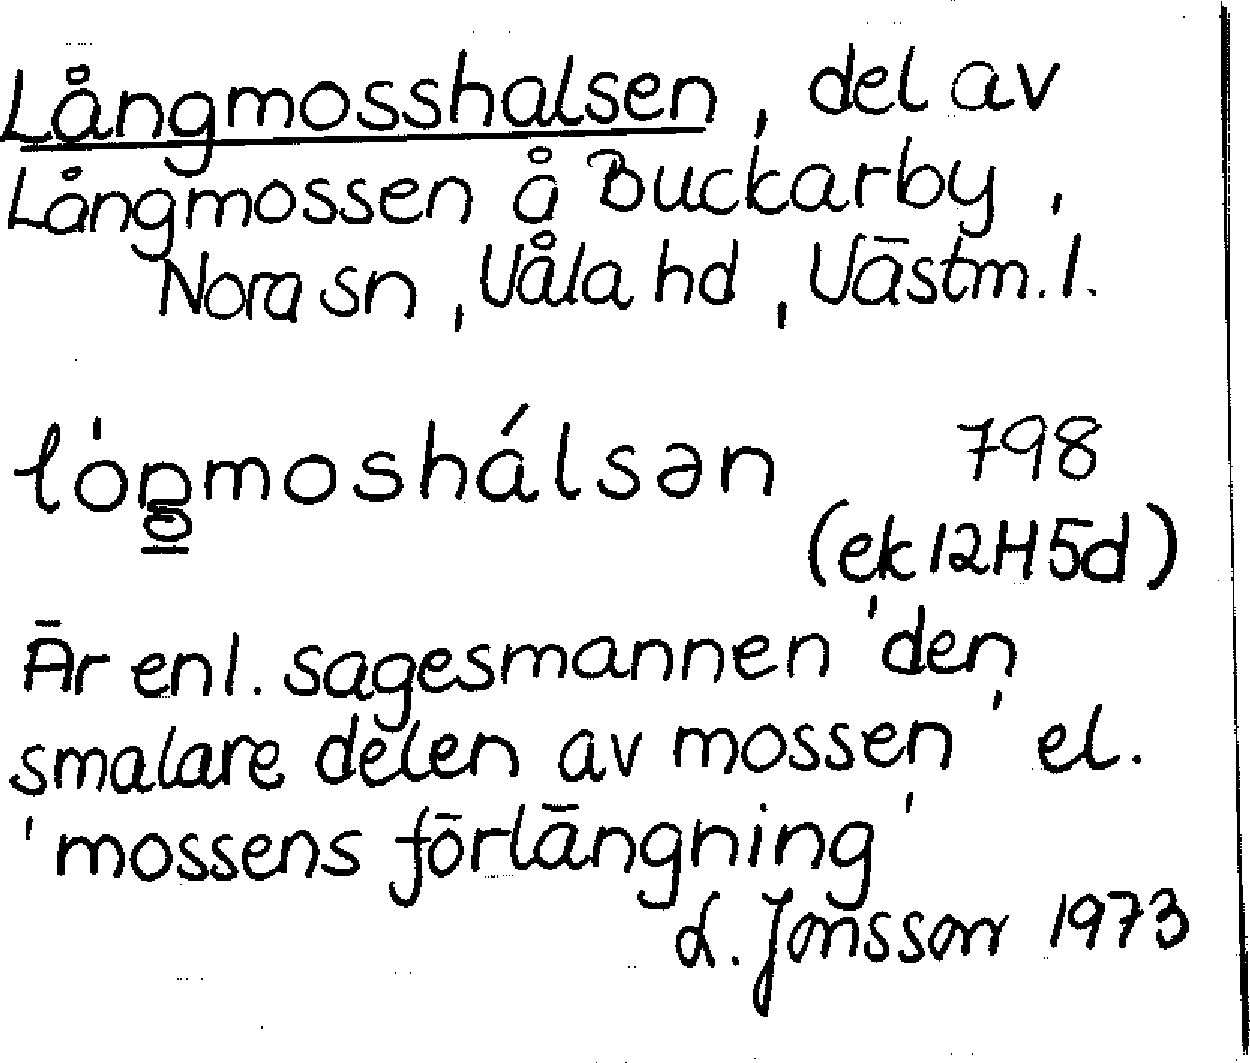 Långmosshalsen, del av
Långmossen å Buckarby,
Nora sn, Våla hd, Västm.l.
798
(ek 12H5d)
Är enl. sagesmannen 'den
smalare delen av mossen' el.
'mossens förlängning'
L. Jonsson 1973